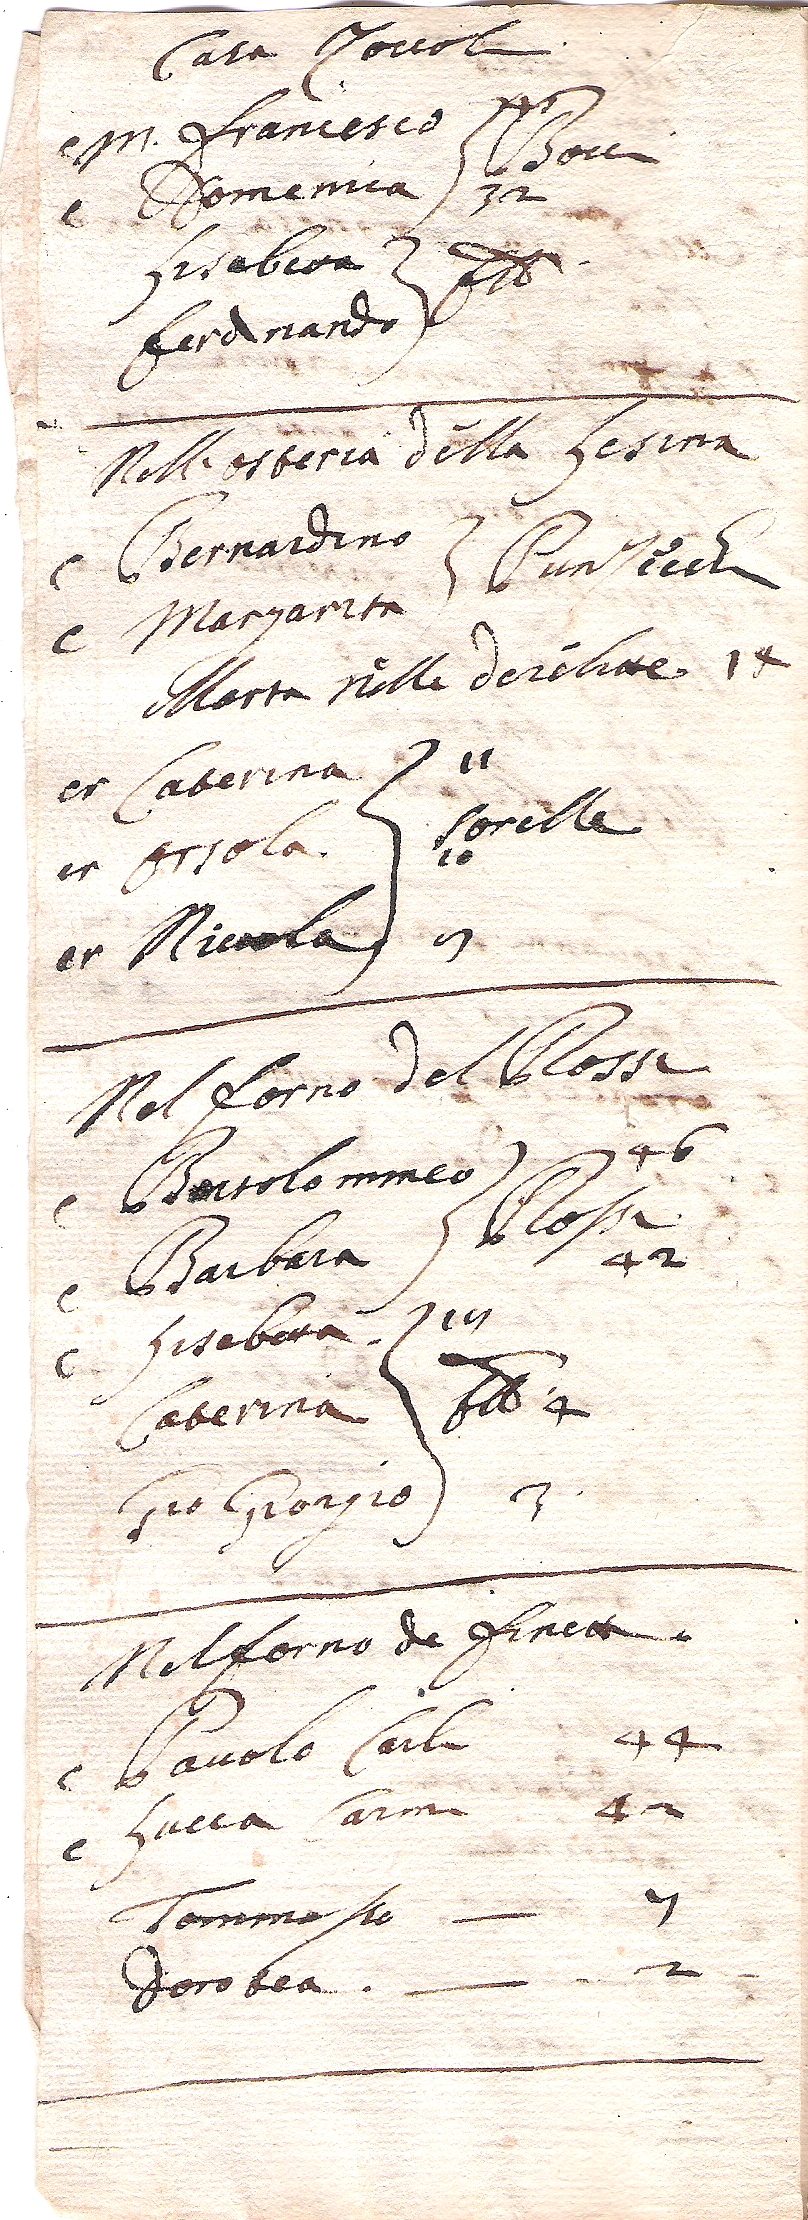 Casa Zoccoli
e M. Francesco 45
Bocci
e Domenica 32
Lisabetta
Ferdinando
Nell osteria della Lesina
e Bernardino
e Margarita
Marta nelle derelitte 14
er Caterina 11
er Orsola sorelle 10
er Niccola 7
Nel forno del Rossi
e Bartolommeo 46
Rossi
e Barbara 42
e Lisabetta
Caterina 4
Gio Giorgio 3
Nel forno de Finetti
e Pauolo Carli 44
e Lucca 42
Tommasso — 7
Dorotea . — 2